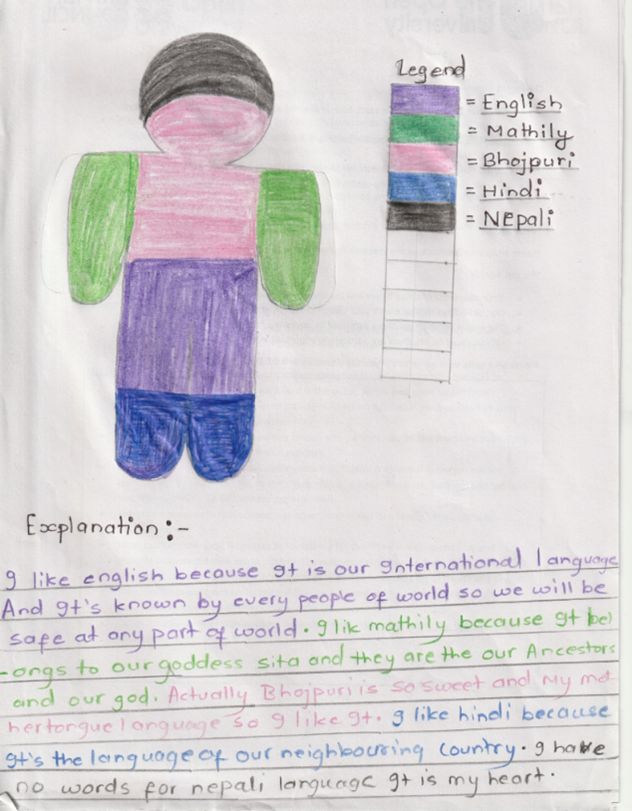 Legend
= English
= Mathily
= Bhojpuri
= Hindi
= Nepali
Explanation :-
I like english because It is our International language
And It's known by every people of world so we will be
safe at any part of world. I lik mathily because It bel
-ongs to our goddess sita and they are the our Ancestors
and our god. Actually Bhojpuri is so sweet and My mot
hertongue language so I like It. I like hindi because
It's the language of our neighbouring country. I have
no words for nepali language It is my heart.